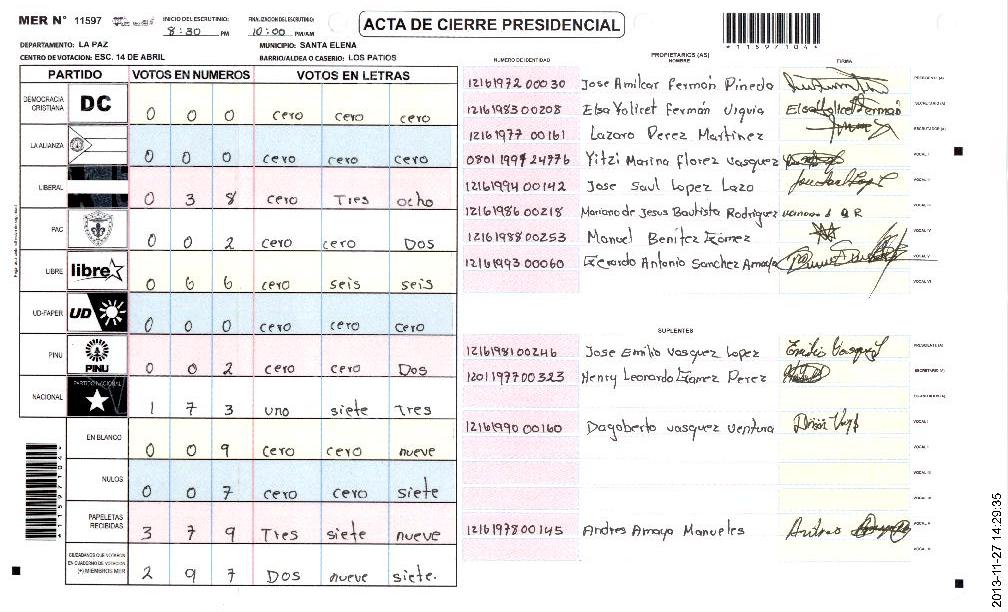 MER N° 11597
INICIO DEL ESCRUTINIO: 8:30 PM
FINALIZACION DEL ESCRUTINIO: 10:00 PM/AM
ACTA DE CIERRE PRESIDENCIAL
*11597104*
DEPARTAMENTO: LA PAZ
MUNICIPIO: SANTA ELENA
CENTRO DE VOTACION: ESC. 14 DE ABRIL
BARRIO/ALDEA O CASERIO: LOS PATIOS
PARTIDO VOTOS EN NUMEROS VOTOS EN LETRAS
DEMOCRACIA CRISTIANA DC 0 0 0 cero cero cero
LA ALIANZA 0 0 0 cero cero cero
LIBERAL 0 3 8 cero Tres ocho
PAC 0 0 2 cero cero Dos
LIBRE libre 0 6 6 cero seis seis
UD-FAPER UD 0 0 0 cero cero cero
PINU PINU 0 0 2 cero cero Dos
NACIONAL PARTIDO NACIONAL 1 7 3 uno siete Tres
EN BLANCO 0 0 9 cero cero nueve
NULOS 0 0 7 cero cero siete
PAPELETAS RECIBIDAS 3 7 9 Tres siete nueve
CIUDADANOS QUE VOTARON EN CUADERNO DE VOTACION (+) MIEMBROS MER 2 9 7 Dos nueve siete.
*11597104*
PROPIETARIOS (AS)
NUMERO DE IDENTIDAD NOMBRE FIRMA
1216197200030 Jose Amilcar Fermán Pineda PRESIDENTE (A)
1216198300208 Elsa Yolicet Fermán Urquia SECRETARIO (A)
1216197700161 Lazaro Perez Martinez ESCRUTADOR (A)
0801199724776 Yitzi Marina florez vasquez VOCAL I
1216199400142 Jose Saul Lopez Lazo VOCAL II
1216198600218 Mariano de Jesus Bautista Rodriguez VOCAL III
1216198800253 Manuel Benitez Gómez VOCAL IV
1216199300060 Gerardo Antonio Sanchez Amaya VOCAL V
VOCAL VI
SUPLENTES
1216198100246 Jose Emilio vasquez Lopez Emilio Vasquez PRESIDENTE (A)
1201197700323 Henry Leonardo Gamez Perez SECRETARIO (A)
ESCRUTADOR (A)
1216199000160 Dagoberto vasquez ventura VOCAL I
VOCAL II
VOCAL III
VOCAL IV
1216197800145 Andres Amaya Manueles VOCAL V
VOCAL VI
2013-11-27 14:29:35